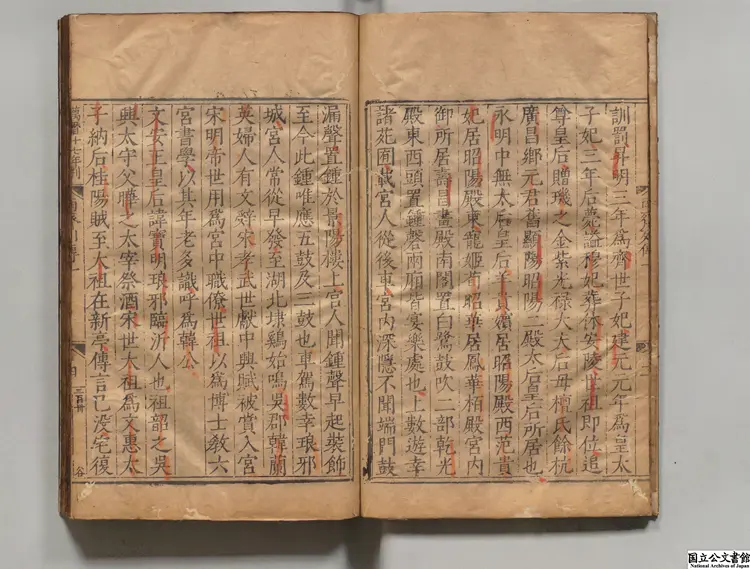 訓罰昇明三年爲齊世子妃建元元年爲皇太
子妃三年后薨謚穆妃葬休安陵世祖即位追
尊皇后贈璣之金紫光祿大夫后母檀氏餘杭
廣昌鄉元君舊顯陽昭陽二殿太后皇后所居也
永明中無太后皇后羊貴嬪居昭陽殿西范貴
妃居昭陽殿東寵姬荀昭華居鳳華栢殿宮内
御所居壽昌畫殿南閣置白鷺鼓吹二部乾光
殿東西頭置鍾磬兩廂皆宴樂處也上數遊幸
諸苑囿載宮人從後車宮内深隱不聞端門鼓
漏聲置鍾於景陽樓上宮人聞鍾聲早起裝飾
至今此鍾唯應五鼓及三鼓也車駕數幸琅邪
城宮人常從早發至湖北埭鷄始鳴吳郡韓蘭
英婦人有文辭宋孝武世獻中興賦被賞入宮
宋明帝世用爲宮中職僚世祖以爲博士教六
宮書學以其年老多識呼爲韓公
文安王皇后諱寶明琅邪臨沂人也祖韶之吳
興太守父曄之太宰祭酒宋世太祖爲文惠太
子納后桂陽賊至太祖在新亭傳言已没宅復
萬曆十七年刊
國立公文書館
National Archives of Japan